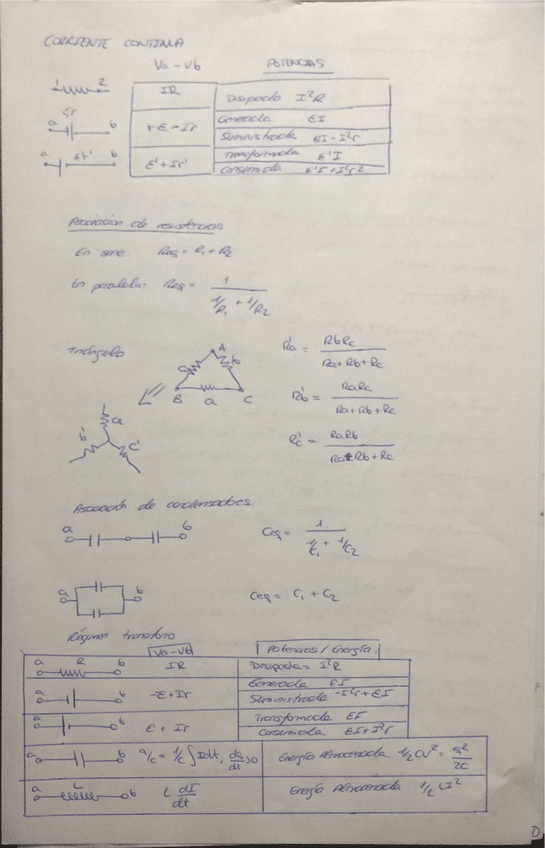 CORRIENTE CONTINUA
Va-Vb POTENCIAS
1 2 IR Disipada I²R
a εr b +ε-Ir Generada εI
Suministrada εI-I²r
a ε'r' b ε'+Ir' Transformada ε'I
Consumida ε'I+I²r2
Asociación de resistencias
En serie: Req = R1 + R2
En paralelo: Req = 1 / (1/R1 + 1/R2)
Triángulo A B C a b c
Ra' = RbRc / (Ra+Rb+Rc)
Rb' = RaRc / (Ra+Rb+Rc)
a b' c'
Rc' = RaRb / (Ra+Rb+Rc)
Asociación de condensadores
a b Ceq = 1 / (1/C1 + 1/C2)
a b Ceq = C1 + C2
Régimen transitorio
Va-Vb Potencias/Energía.
a R b IR Disipada = I²R
a b -ε+Ir Generada εI
Suministrada -I²r+εI
a b ε+Ir Transformada εI
Consumida εI+I²r
a b q/c = 1/c ∫Idt, dq/dt >0 Energía Almacenada 1/2 CV² = q²/2C
a L b L dI/dt Energía Almacenada 1/2 LI²